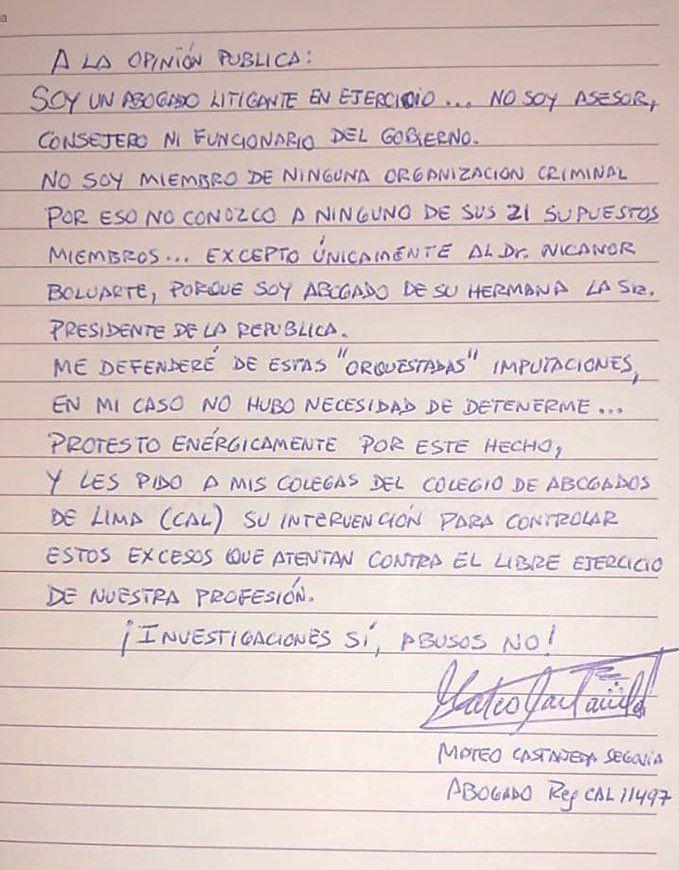 A LA OPINIÓN PUBLICA:
SOY UN ABOGADO LITIGANTE EN EJERCICIO... NO SOY ASESOR,
CONSEJERO NI FUNCIONARIO DEL GOBIERNO.
NO SOY MIEMBRO DE NINGUNA ORGANIZACION CRIMINAL
POR ESO NO CONOZCO A NINGUNO DE SUS 21 SUPUESTOS
MIEMBROS... EXCEPTO ÚNICAMENTE AL Dr. NICANOR
BOLUARTE, PORQUE SOY ABOGADO DE SU HERMANA LA Sra.
PRESIDENTE DE LA REPUBLICA.
ME DEFENDERÉ DE ESTAS "ORQUESTADAS" IMPUTACIONES,
EN MI CASO NO HUBO NECESIDAD DE DETENERME...
PROTESTO ENÉRGICAMENTE POR ESTE HECHO,
Y LES PIDO A MIS COLEGAS DEL COLEGIO DE ABOGADOS
DE LIMA (CAL) SU INTERVENCIÓN PARA CONTROLAR
ESTOS EXCESOS QUE ATENTAN CONTRA EL LIBRE EJERCICIO
DE NUESTRA PROFESIÓN.
¡INVESTIGACIONES SÍ, ABUSOS NO!
MATEO CASTAÑEDA SEGOVIA
ABOGADO Reg CAL 11497